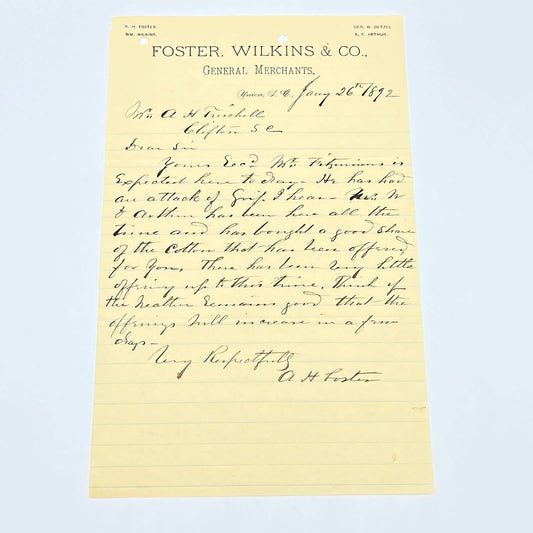 A. H. FOSTER.
WM. WILKINS.
GEO. H. OETZEL.
B. F. ARTHUR.
FOSTER, WILKINS & CO.,
GENERAL MERCHANTS,
Union, S. C., Jany 26th 1892
Mr A H Twichell
Clifton S C
Dear Sir
Yours Recd. Mr. Fitzsimons is
Expected here to day - He has had
an attack of Grip. I hear - Mr. W
D Arthur has been here all the
time and has bought a good share
of the cotton that has been offered
for You, There has been Very little
offering up to this time, Think if
the weather Remains good that the
offerings will increase in a few
days -
Very Respectfully
A H Foster